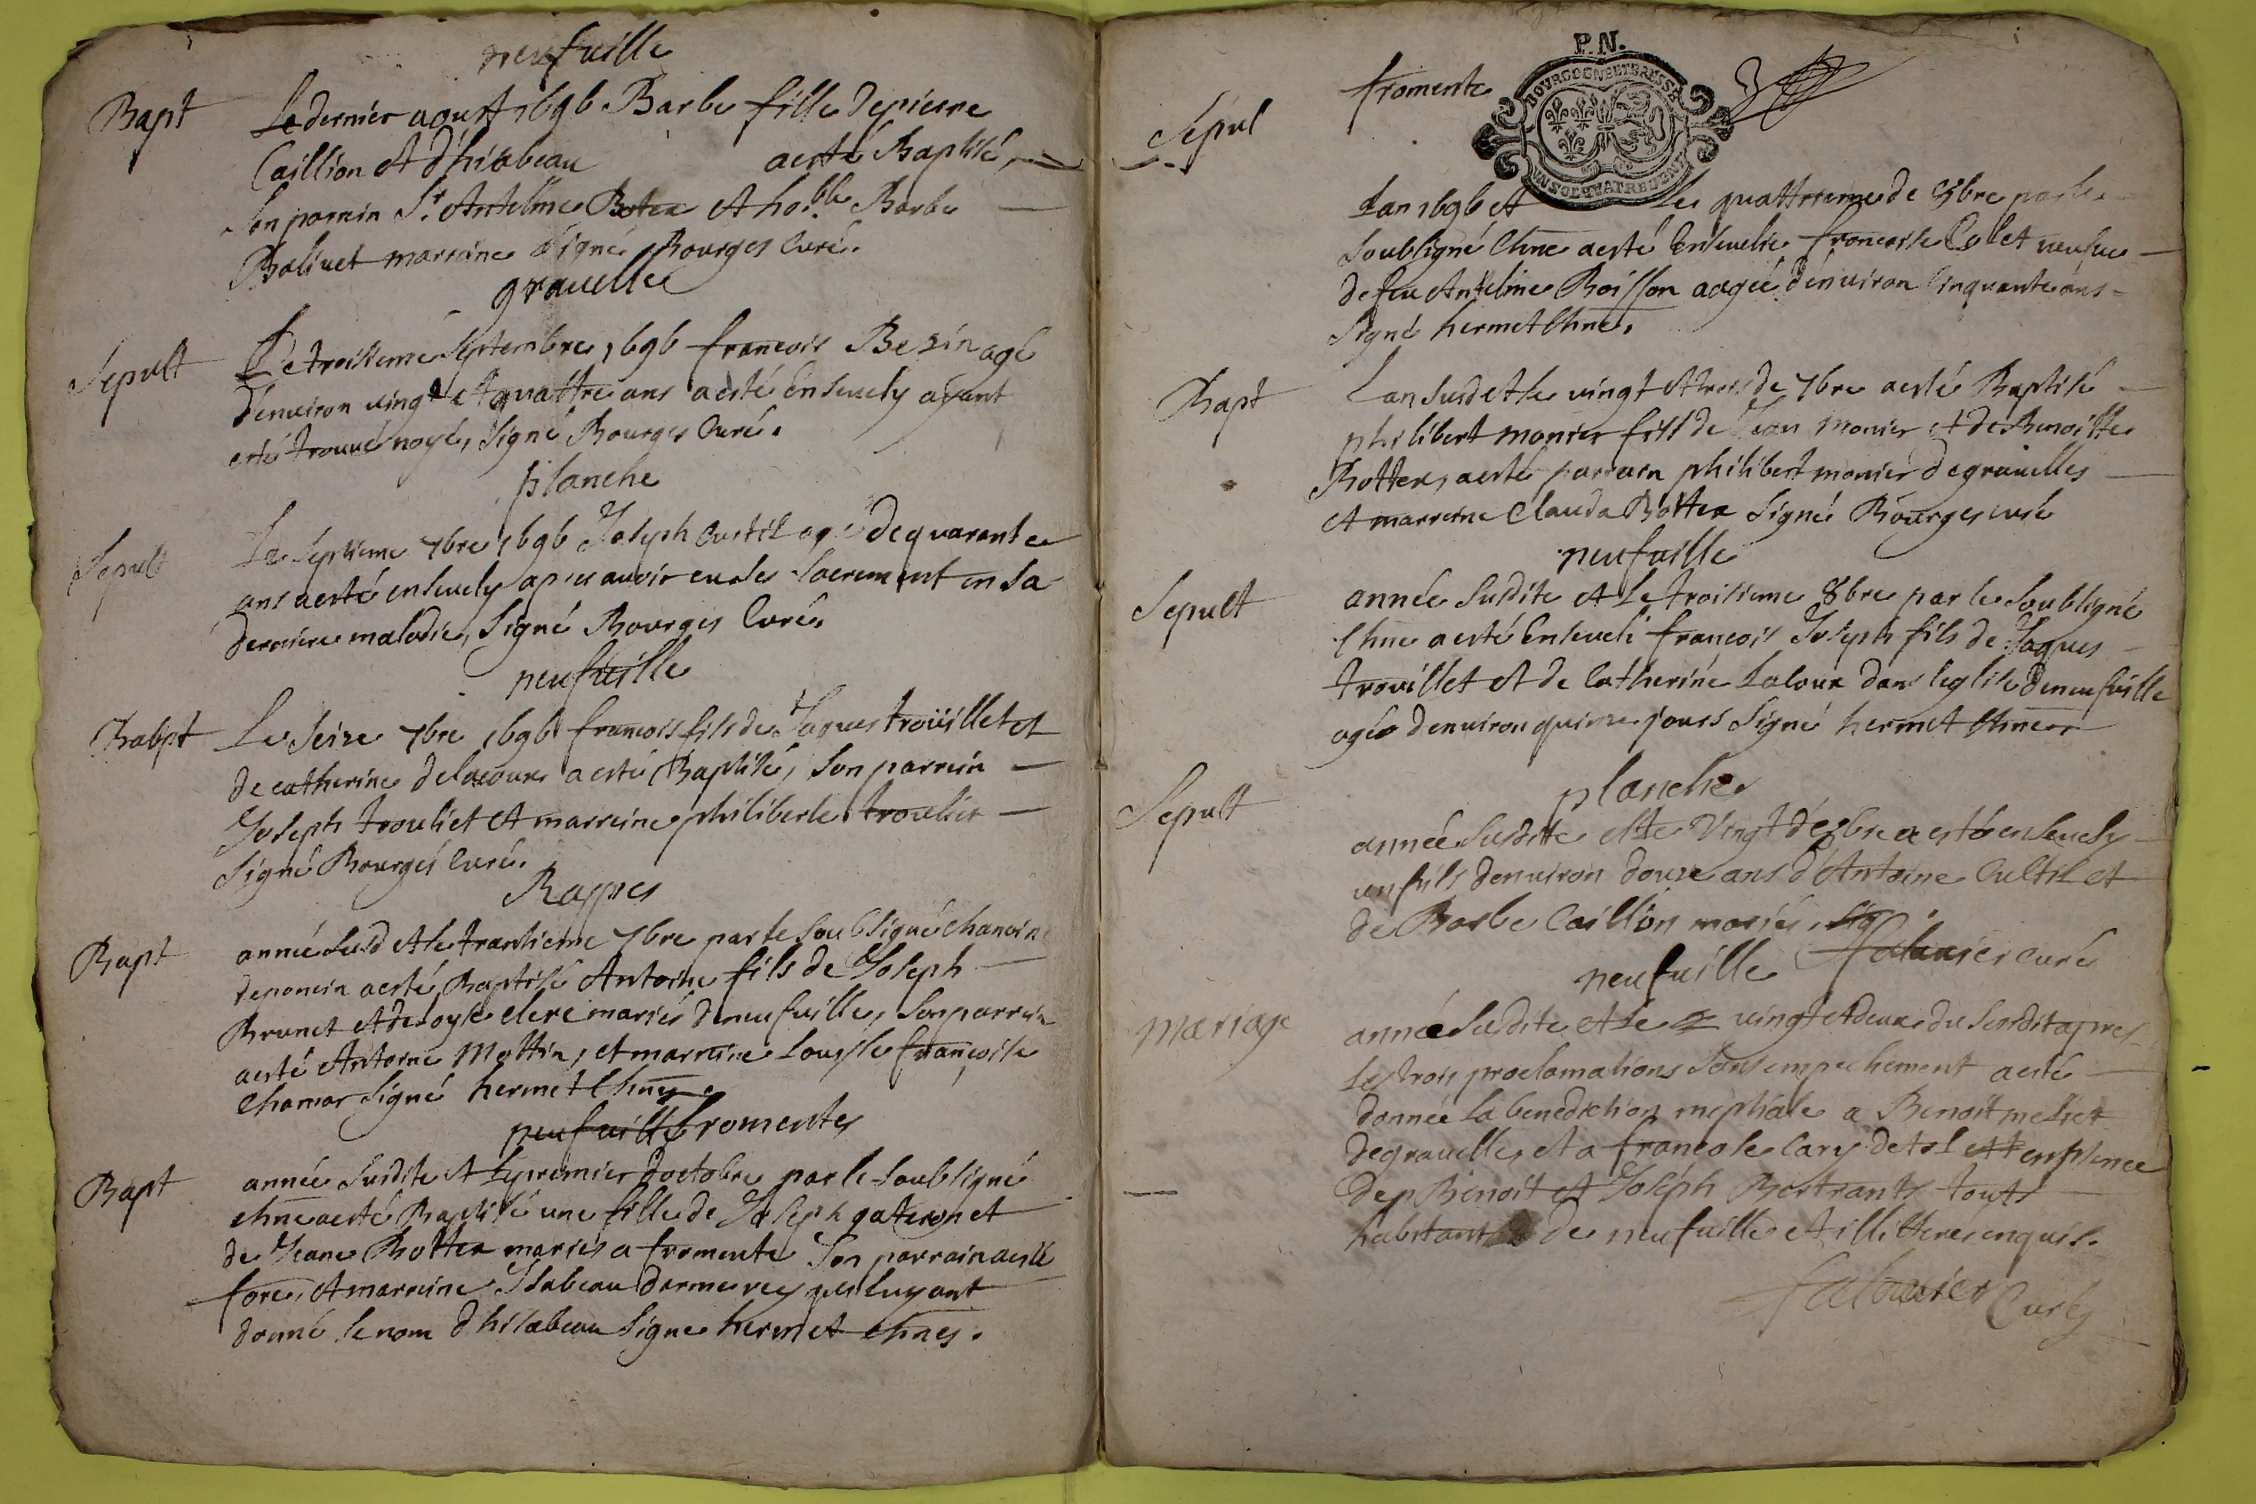 neufuille
Bapt
Le dernier aoust 1696 Barbe fille de pierre
Caillion et d'hisabeau a esté Baptisé,
son parrain Sr. Antelme Botex et hoble. Barbe
Balivet marraine signé Bourges Curé.
grauelle
Sepult
Le troisieme septembre 1696 francois Bezin agé
d'enuiron vingt et quattre ans a esté enseuely ayant
esté trouué noyé, signé Bourges Curé.
planche
Sepult
Le septieme 7bre 1696 Joseph Custil agé de quarante
ans a esté enseuely apres auoir eu les sacrement en sa
derniere maladie, signé Bourges Curé.
neufuille
Babpt
Le seize 7bre 1696 francois fils de Jaques troüillet et
de catherine delacoux a esté Baptisé, son parrein
Joseph trouliet et marreine philiberte troulier
signé Bourges Curé.
Rappes
Bapt
année susd et le trantieme 7bre par le soubsigné chanoin
de poncin a esté Baptisé Antoine fils de Joseph
Brunet et de loyse clerc mariés de neufuille, son parrein
a esté Antoine Mottin, et marraine Louyse francoise
Chamar signé hermet Chne.
neufuille fromentes
Bapt
année susdite et le premier d'octobre par le soubsigné
chne a esté Baptisé une fille de Joseph gateron et
de Jeane Botter mariés a fromente son parrain a esté
fore, et marraine Isabeau dermerey qui luy ont
donné le nom d'hisabeau signe hermet chnes.
Sepul
fromente
P.N.
BOURGOGNE ET BRESSE
UN SOL QUATRE DEN
L'an 1696 et le quattrieme de 7bre par le
soubsigné Chne a esté Enseuelie francoise Colet veufue
de feu Antelme Boisson aagée d'enuiron Cinquante ans
signé hermet Chne.
Bapt
L'an susd et le vingt et trois de 7bre a esté Baptisé
philibert monier fils de Jean monier et de Benoitte
Botter, a esté parrain philibert monier de grauelles
et marreine Clauda Botter signé Bourges curé
neufuille
Sepult
année susdite et le troisieme 8bre par le soubsigné
Chne a esté Enseueli francois Joseph fils de Jaques
trouillet et de Catherine Lacoux dans l'eglise de neufuille
agé d'enuiron quinze jours signé hermet Chne
planche
Sepult
année susditte et le Vingt de 8bre a esté enseuely
un fils d'enuiron douze ans d'Antoine Custil et
de Barbe Caillion mariés, sig
falauier curé
neufuille
mariage
année susdite et le vingt et deux du susdit apres
les trois proclamations sans empechement a esté
donnée la benediction nuptiale a Benoit melliet
de grauelles et a francoise Cary de et en presence
de Benoit et Joseph Bertrants touts
habitants de neufuille et illitteres enquis.
falauier Curé